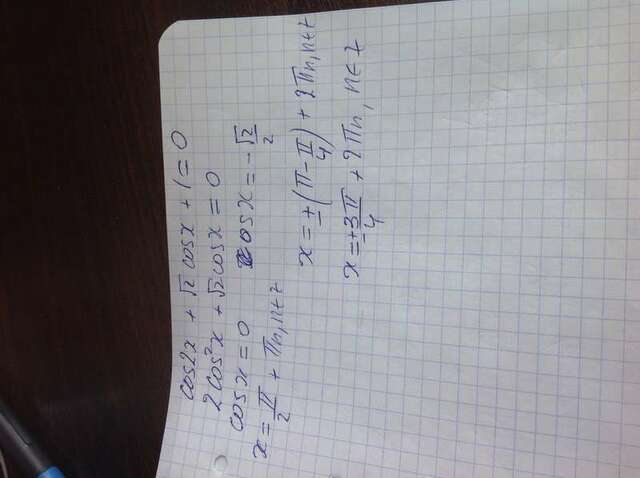 cos2x + √2 cosx + 1 = 0
2cos²x + √2 cosx = 0
cosx = 0 cosx = -√2/2
x = π/2 + πn, n∈z x = ±(π - π/4) + 2πn, n∈z
x = ±3π/4 + 2πn, n∈z